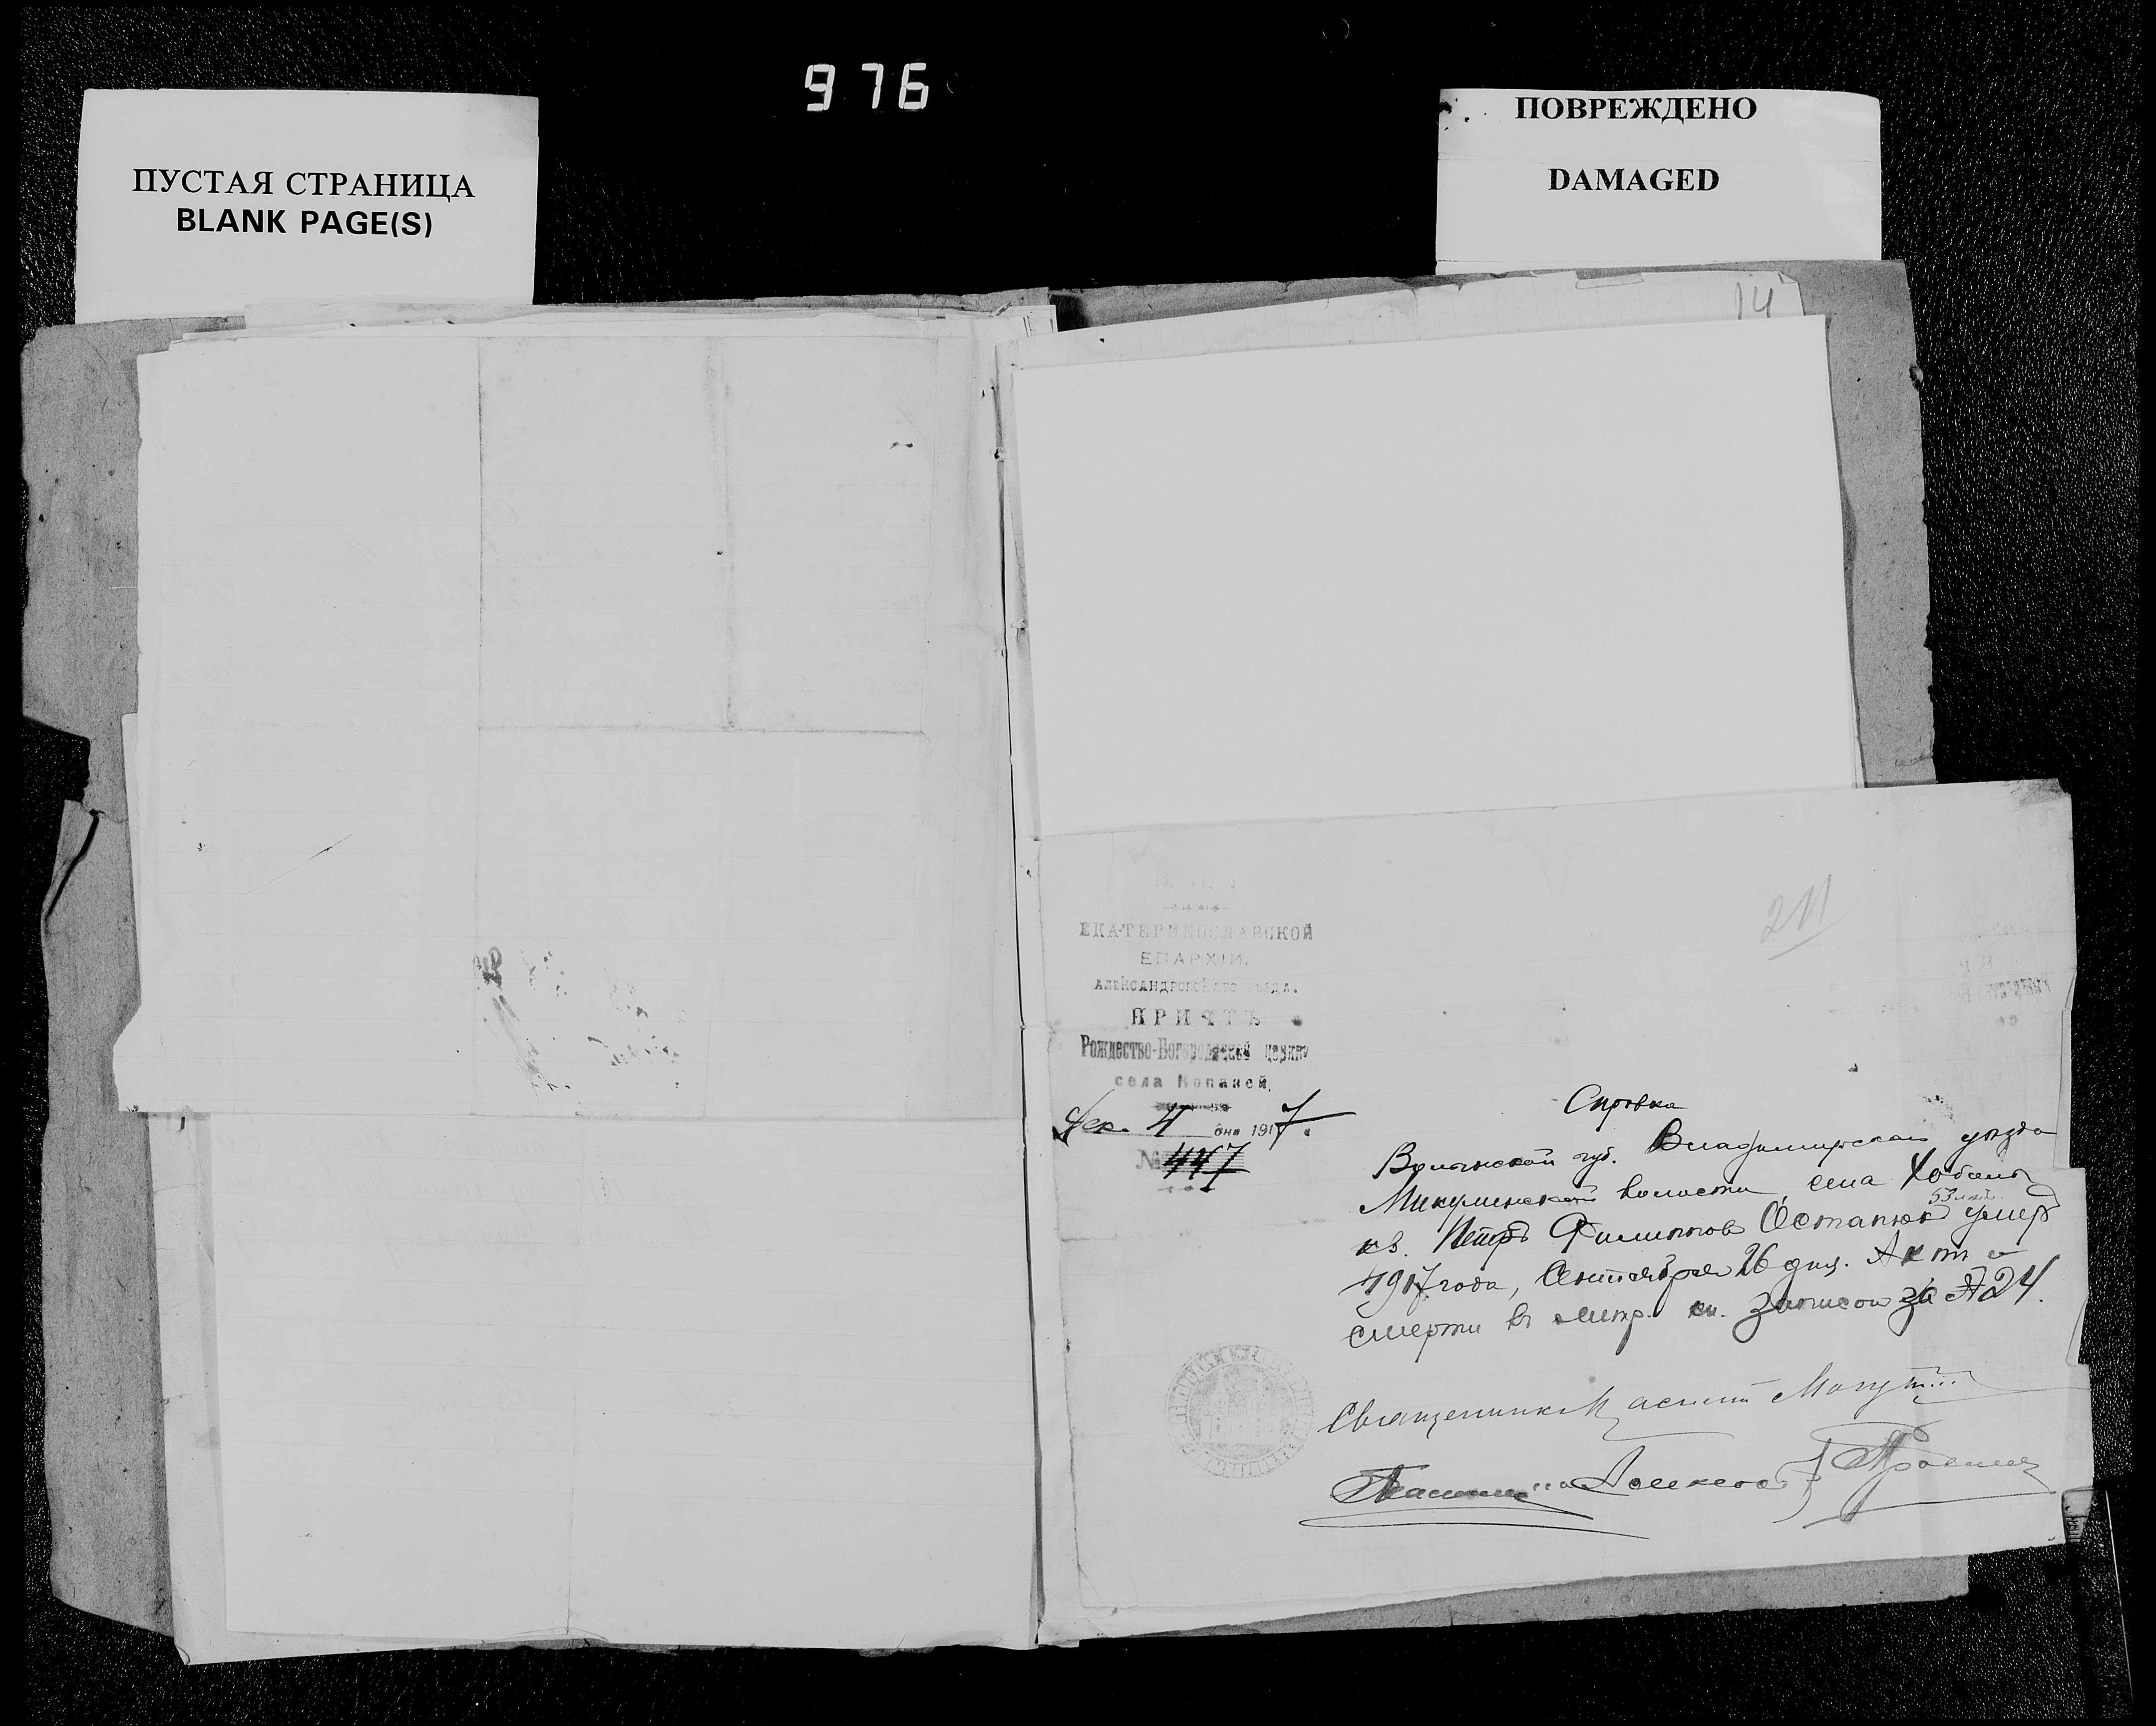 976
ПУСТАЯ СТРАНИЦА
BLANK PAGE(S)
ПОВРЕЖДЕНО
DAMAGED
14
211
ЕКАТЕРИНОСЛАВСКОЙ
ЕПАРХІИ,
АЛЕКСАНДРОВСКАГО УѢЗДА.
ПРИЧТЪ
Рождество-Богородичной церкви
села Копаней.
Дек. 4 дня 1917 г.
№ 447
Справка
Волынской губ. Владимирскаго уѣзда
Микулинской волости, села Хобель
53 лѣтъ
кв. Петръ Филиппов Остапюкъ умеръ
1917 года, Сентября 26 дня. Актъ о
смерти въ метр. кн. записан за № 24.
Священникъ